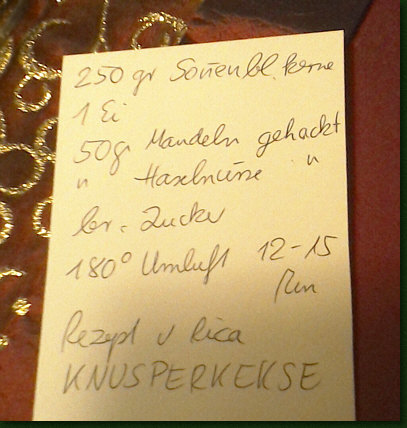 250 gr Sonnenbl. kerne
1 Ei
50 gr Mandeln gehackt
" Haselnüsse "
br. Zucker
180° Umluft 12-15
Min
Rezept v Rica
KNUSPERKEKSE